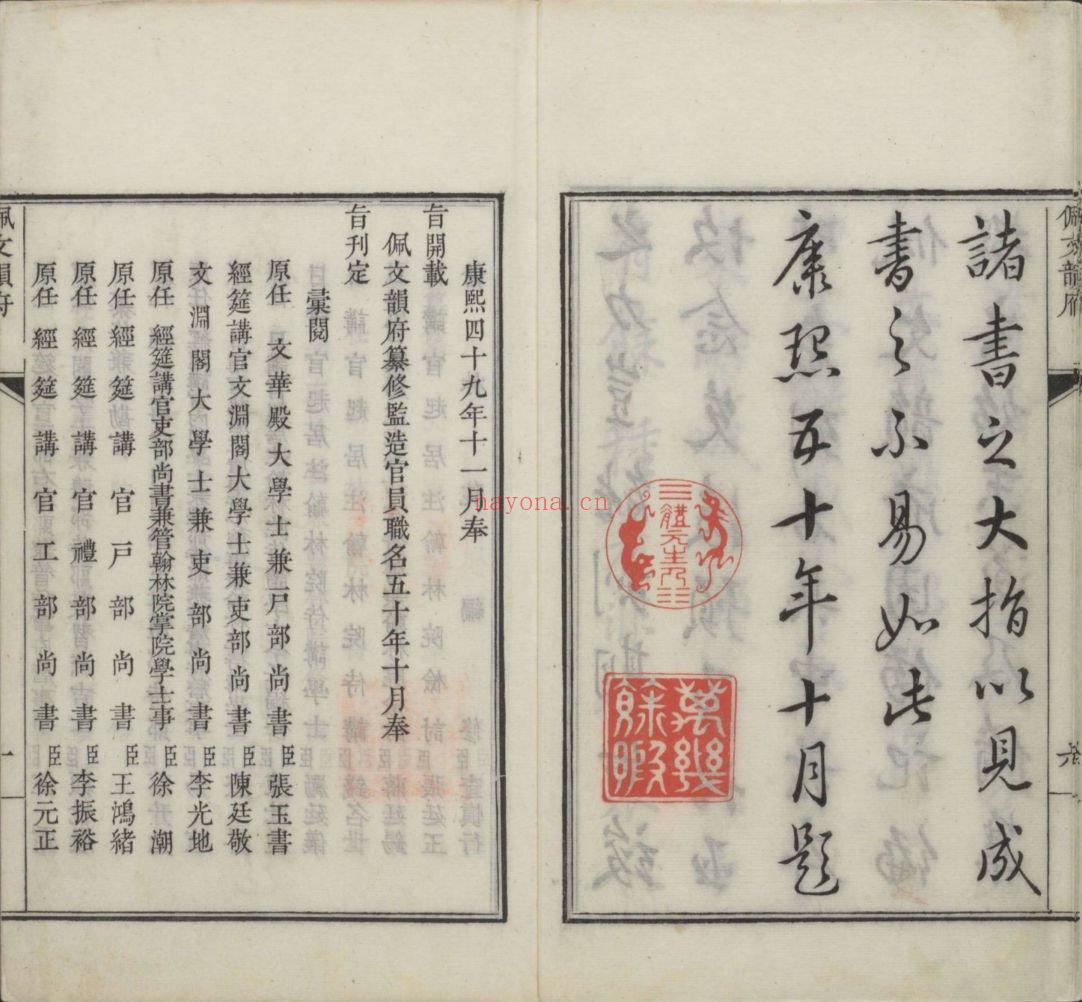 佩文韻府
諸書之大指以見成
書之不易如此
康熙五十年十月題
體元主人
萬幾餘暇
康熙四十九年十一月奉
旨開載
佩文韻府纂修監造官員職名五十年十月奉
旨刊定
彙閱
原任文華殿大學士兼戶部尚書臣張玉書
經筵講官文淵閣大學士兼吏部尚書臣陳廷敬
文淵閣大學士兼吏部尚書臣李光地
原任經筵講官吏部尚書兼管翰林院掌院學士事臣徐潮
原任經筵講官戶部尚書臣王鴻緒
原任經筵講官禮部尚書臣李振裕
原任經筵講官工部尚書臣徐元正
佩文韻府
一
nayona.cn